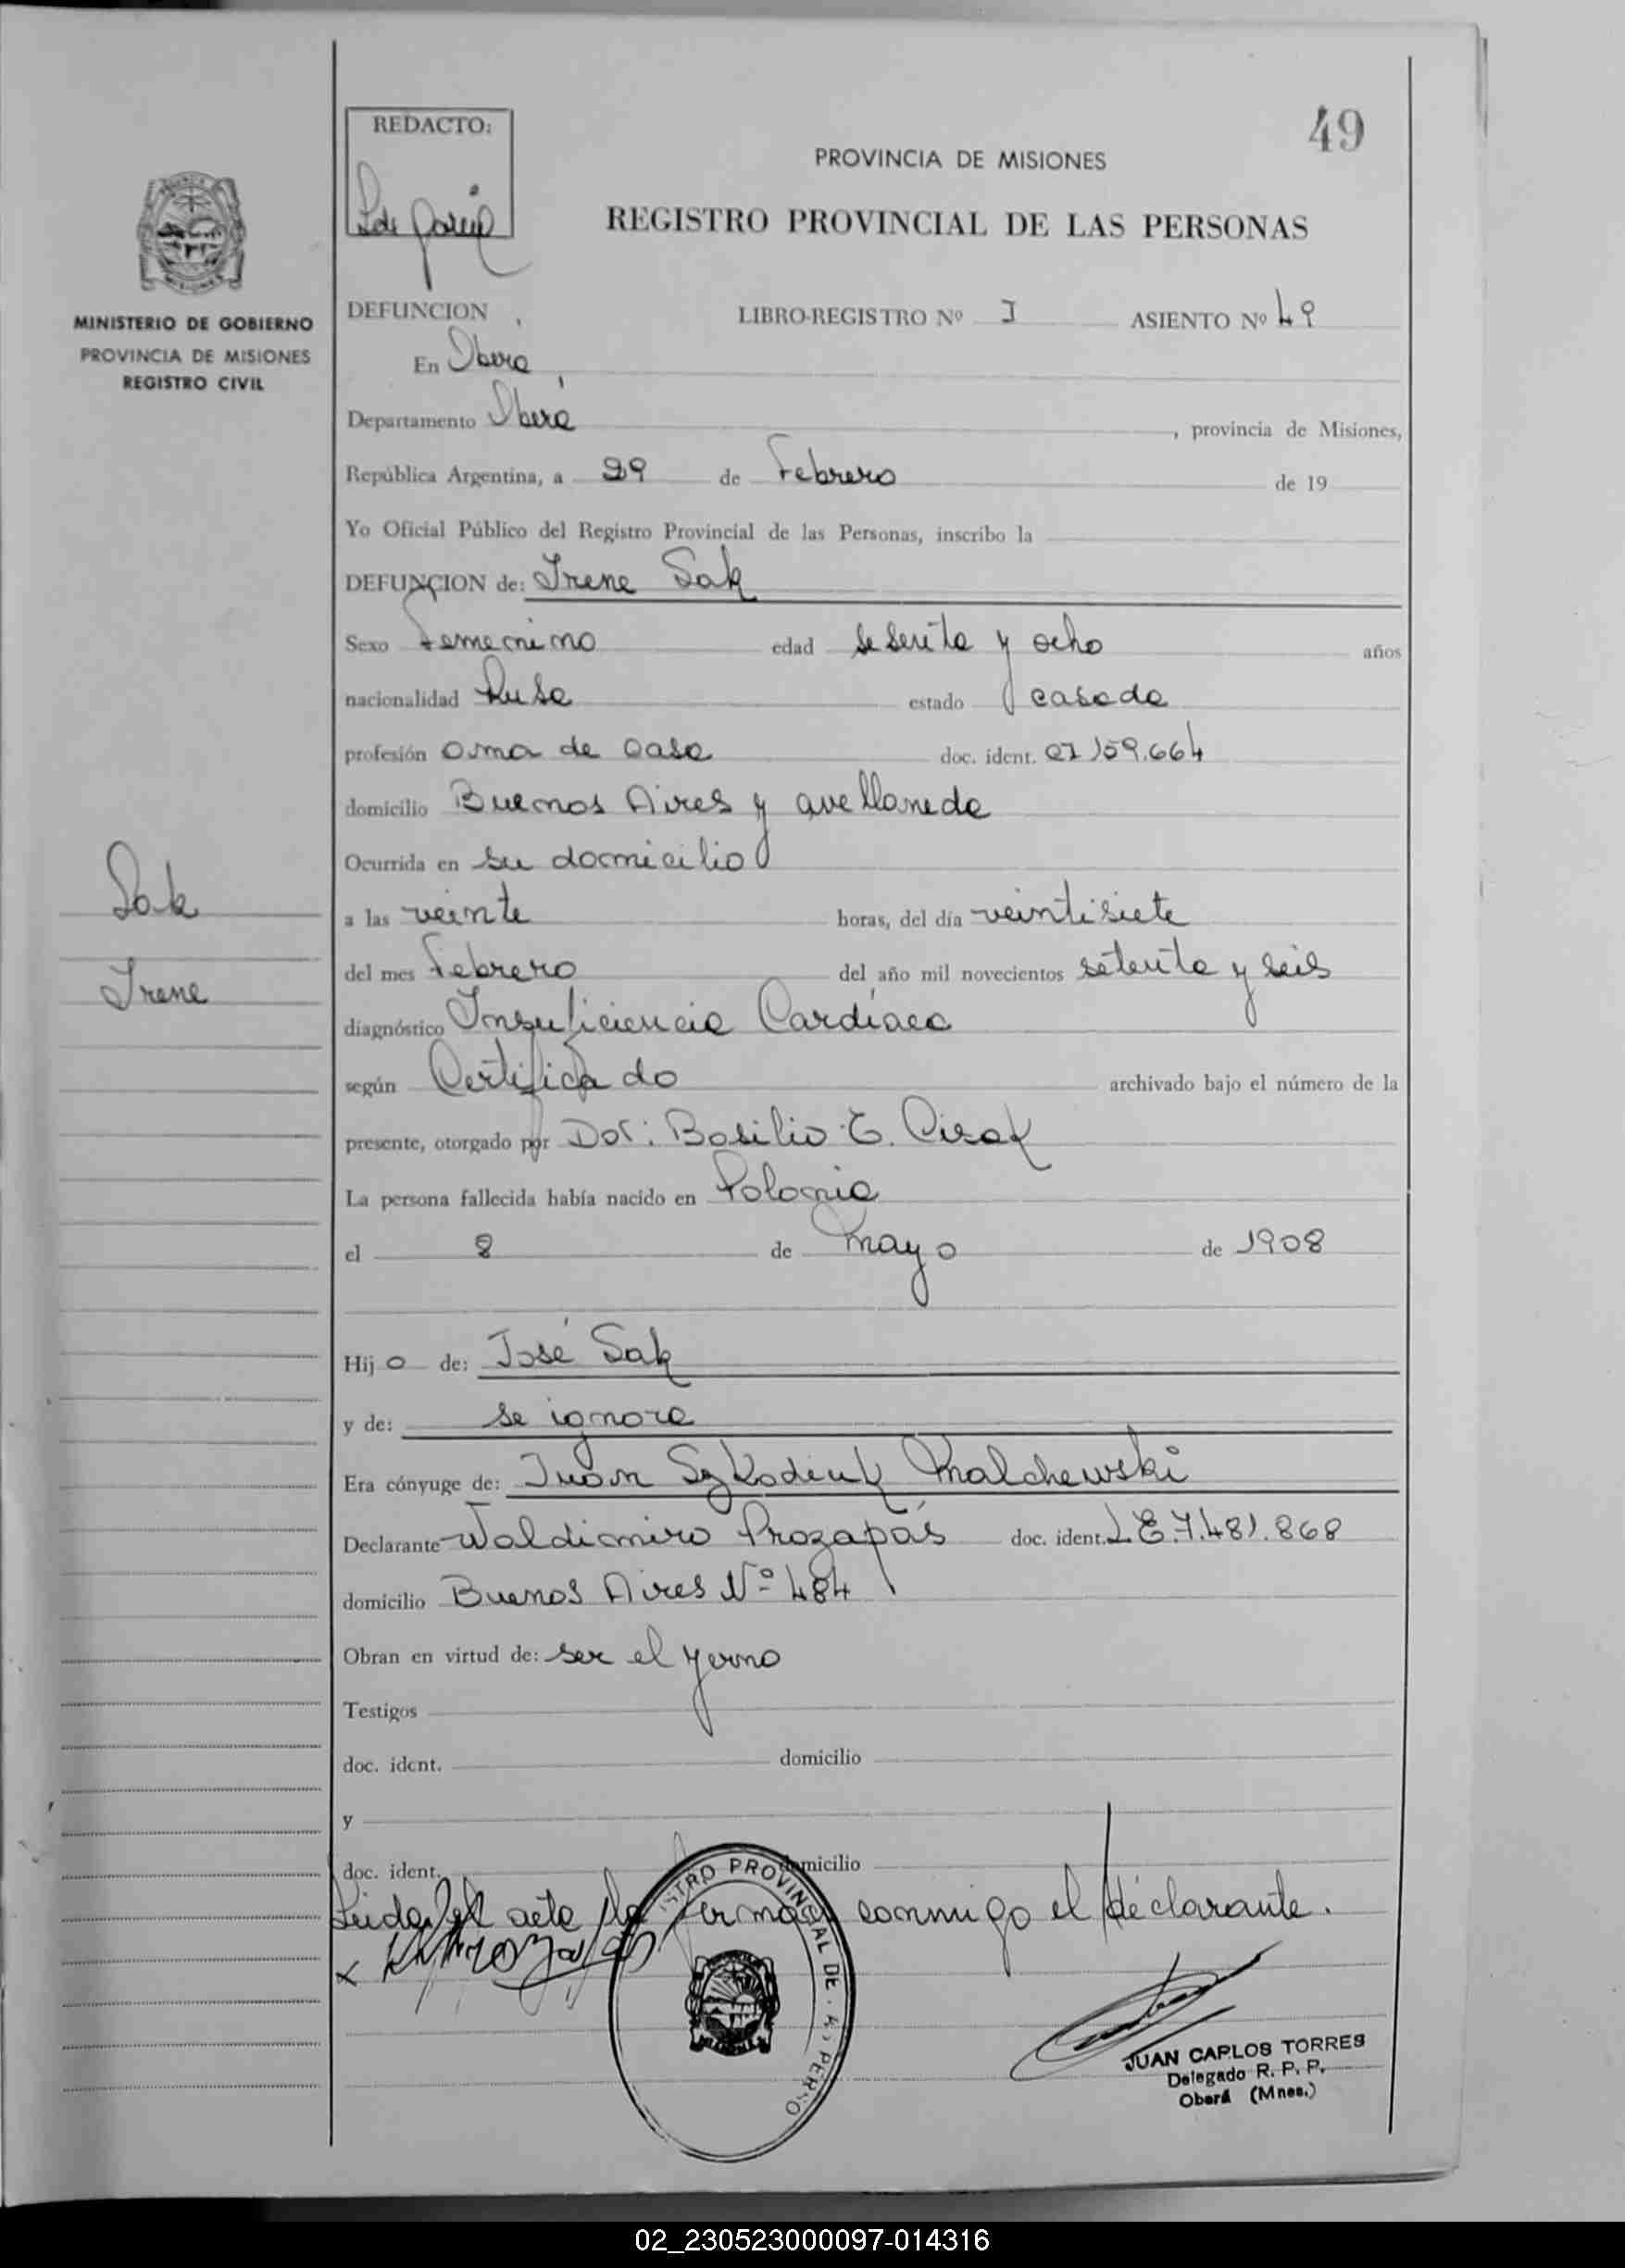 49
REDACTO:
PROVINCIA DE MISIONES
REGISTRO PROVINCIAL DE LAS PERSONAS
MINISTERIO DE GOBIERNO
PROVINCIA DE MISIONES
REGISTRO CIVIL
DEFUNCION LIBRO-REGISTRO Nº I ASIENTO Nº 49
En Oberá
Departamento Oberá, provincia de Misiones,
República Argentina, a 29 de Febrero de 19
Yo Oficial Público del Registro Provincial de las Personas, inscribo la
DEFUNCION de: Irene Sak
Sexo Femenino edad sesenta y ocho años
nacionalidad Rusa estado casada
profesión ama de casa doc. ident. 07159.664
domicilio Buenos Aires y avellaneda
Ocurrida en su domicilio
Sak
Irene
a las veinte horas, del día veintisiete
del mes Febrero del año mil novecientos setenta y seis
diagnóstico Insuficiencia Cardíaca
según Certificado archivado bajo el número de la
presente, otorgado por Dor: Basilio E. Cisak
La persona fallecida había nacido en Polonia
el 8 de mayo de 1908
Hijo de: José Sak
y de: se ignora
Era cónyuge de: Iwan Szkodiuk Malchewski
Declarante Waldimiro Prozapás doc. ident. LE7.481.868
domicilio Buenos Aires Nº 484
Obran en virtud de: ser el yerno
Testigos
doc. ident. domicilio
y
doc. ident. domicilio
Leida el acta la firma conmigo el declarante.
x
JUAN CARLOS TORRES
Delegado R. P. P.
Oberá (Mnes.)
02_230523000097-014316